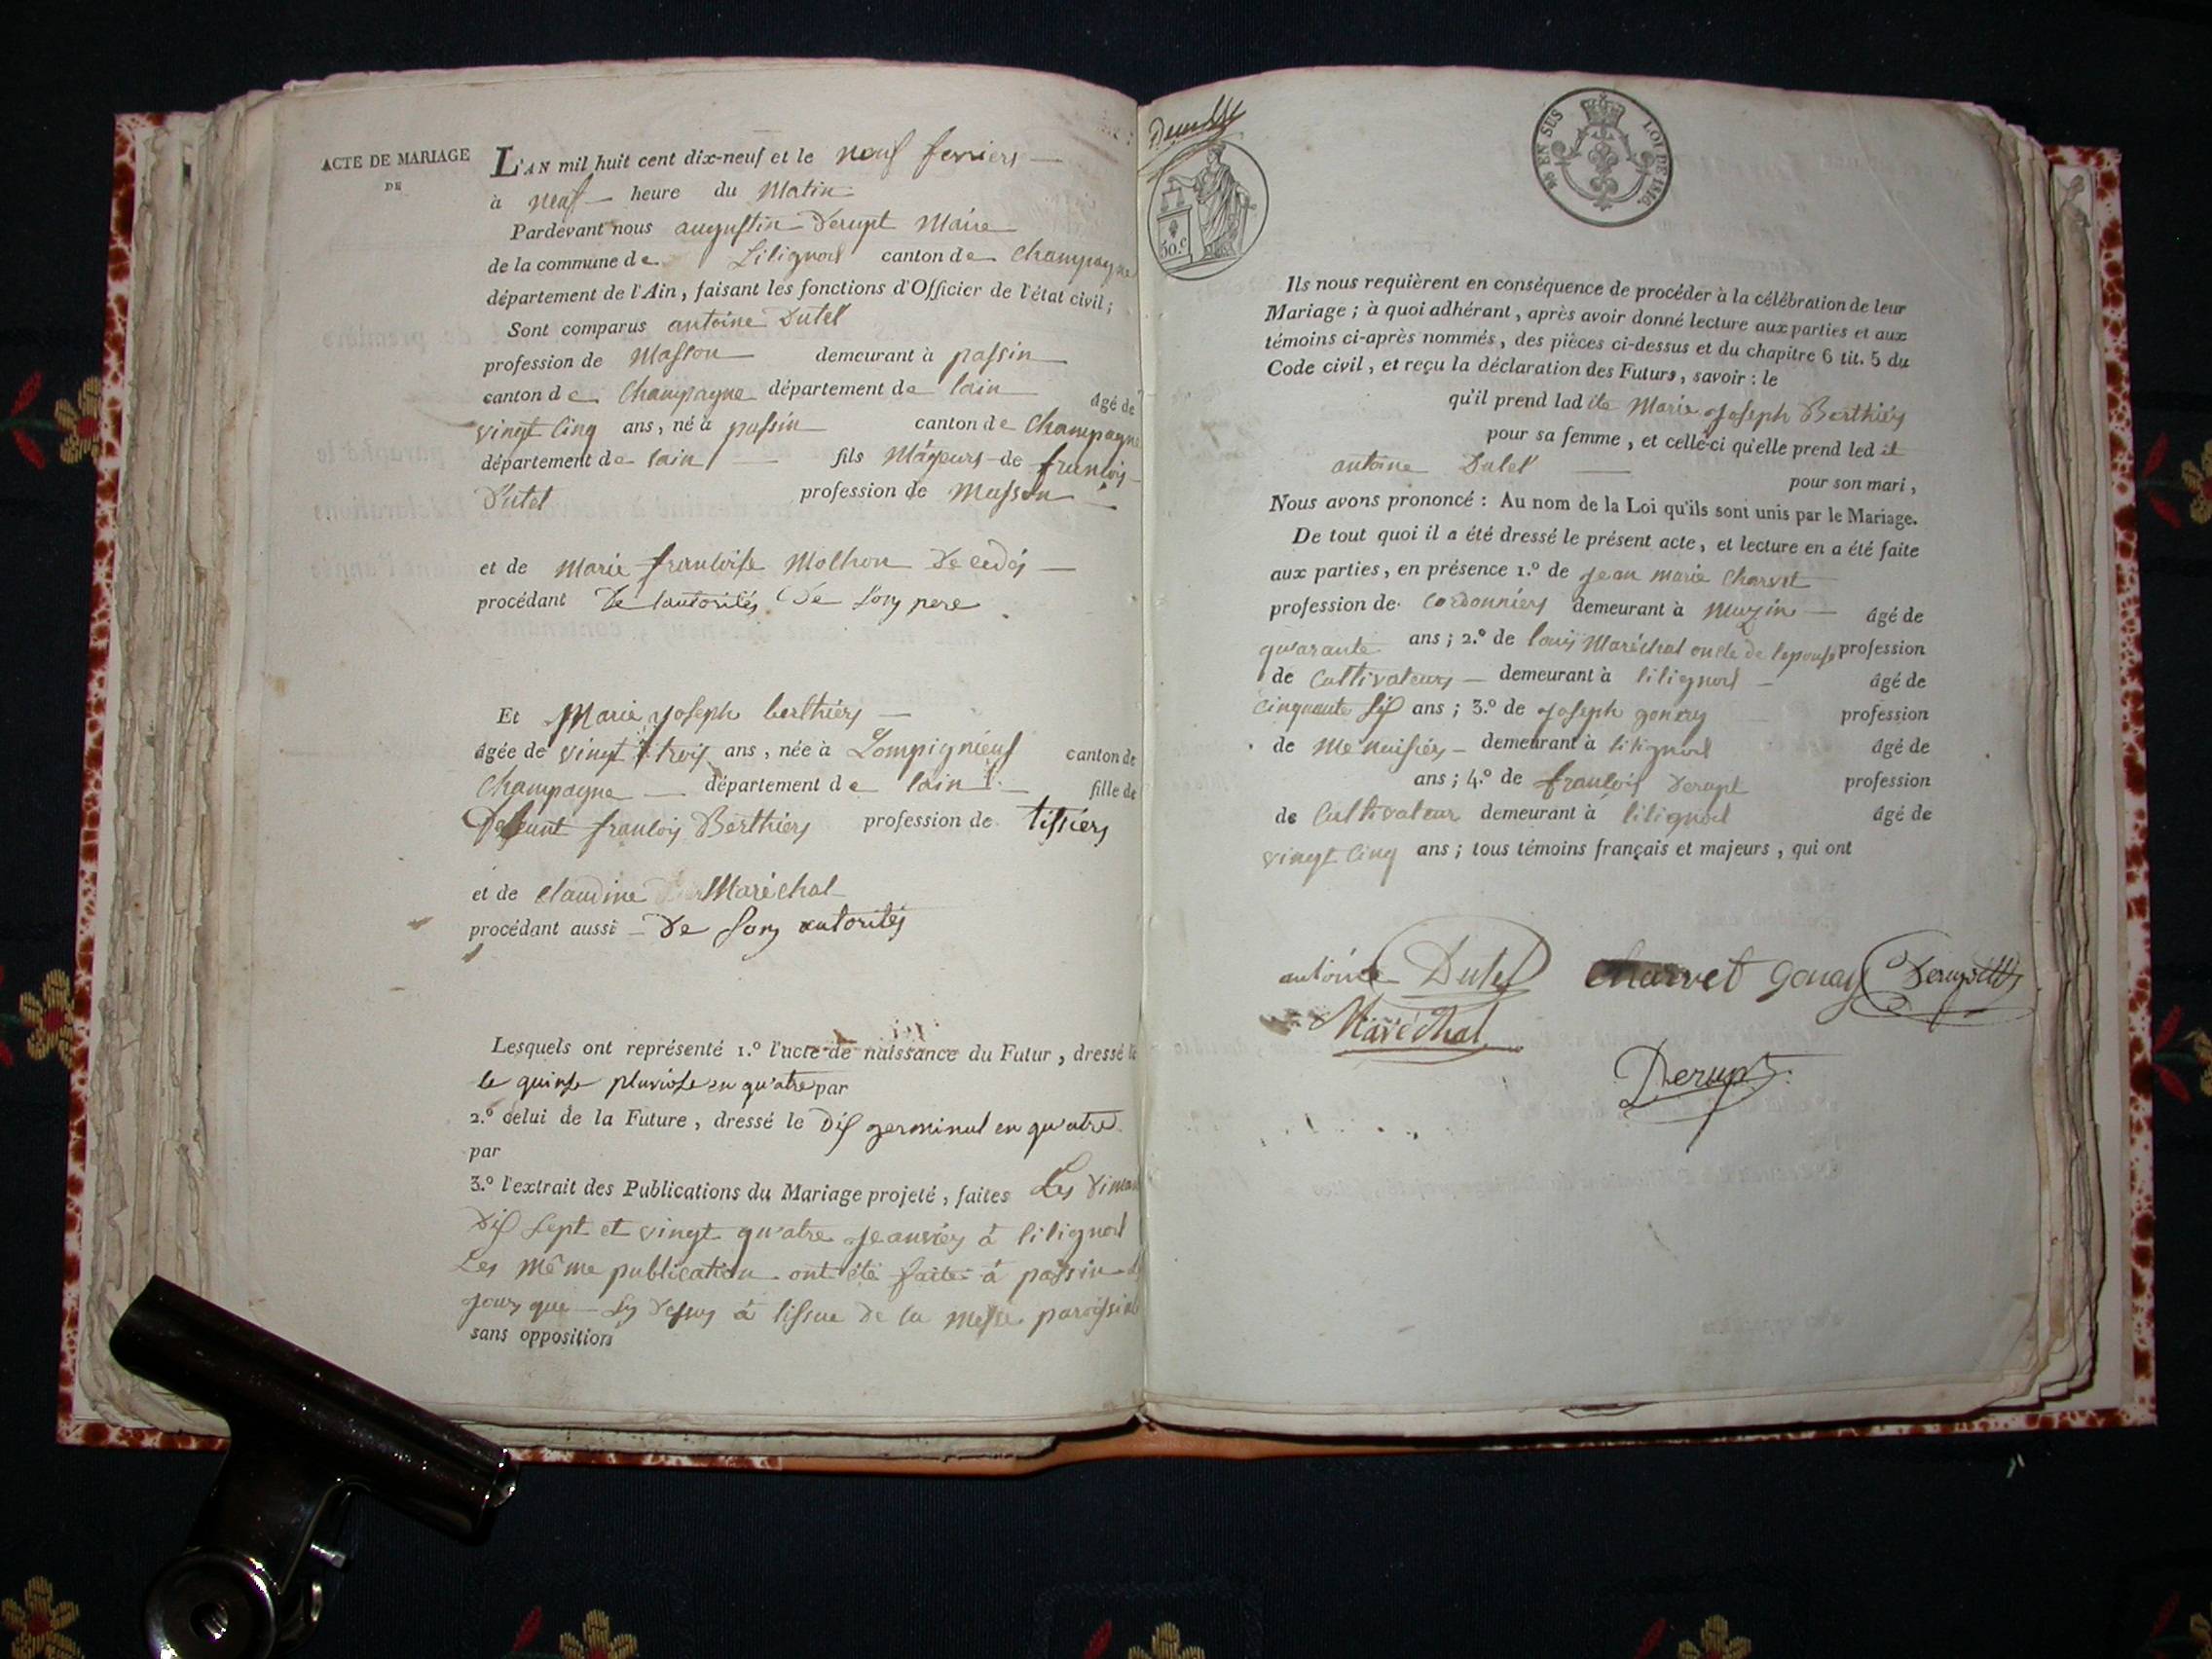 ACTE DE MARIAGE
DE
L'AN mil huit cent dix-neuf et le neuf fevriers
à neuf heure du Matin
Pardevant nous augustin Derupt Maire
de la commune de Lilignod canton de Champagne
département de l'Ain, faisant les fonctions d'Officier de l'état civil;
Sont comparus antoine Dutel
profession de Masson demeurant à passin
canton de Champagne département de lain âgé de
vingt cinq ans, né à passin canton de Champagne
département de lain fils Majeurs de francois
Dutel profession de Masson
et de Marie francoise Molhon Decedés
procédant De lautorités De Son pere
Et Marie Joseph berthiers
âgée de vingt trois ans, née à Lompignieuf canton de
Champagne département de lain fille de
Defeunt francois Berthiers profession de tissiers
et de Claudine Maréchal
procédant aussi De Son autorités
Lesquels ont représenté 1.º l'acte de naissance du Futur, dressé le
le quinse pluviose en qu'atre par
2.º celui de la Future, dressé le Dis germinal en qu'atre
par
3.º l'extrait des Publications du Mariage projeté, faites Les Diman
Dis Sept et vingt qu'atre Jeanviers à lilignod
Les Même publication ont été faite à passin
Jours que Sy Dessus à lissue De la Messe paroissial
sans opposition
50.c
EN SUS
LOI DE 1816.
Ils nous requièrent en conséquence de procéder à la célébration de leur
Mariage; à quoi adhérant, après avoir donné lecture aux parties et aux
témoins ci-après nommés, des pièces ci-dessus et du chapitre 6 tit. 5 du
Code civil, et reçu la déclaration des Futurs, savoir: le
qu'il prend lad ite Marie Joseph Berthiers
pour sa femme, et celle-ci qu'elle prend led it
antoine Dutel
pour son mari,
Nous avons prononcé: Au nom de la Loi qu'ils sont unis par le Mariage.
De tout quoi il a été dressé le présent acte, et lecture en a été faite
aux parties, en présence 1.º de Jean marie Charvet
profession de Cordonniers demeurant à Muzin âgé de
qu'arante ans; 2.º de louis Maréchal oncle de lepouse profession
de Cultivateurs demeurant à lilignod âgé de
cinquante Sis ans; 3.º de Joseph gonay profession
de Menuisiers demeurant à lilignod âgé de
ans; 4.º de francois Derupt profession
de Cultivateur demeurant à lilignod âgé de
vingt Cinq ans; tous témoins français et majeurs, qui ont
antoine Dutel Charvet Gonay
Maréchal
Derupt